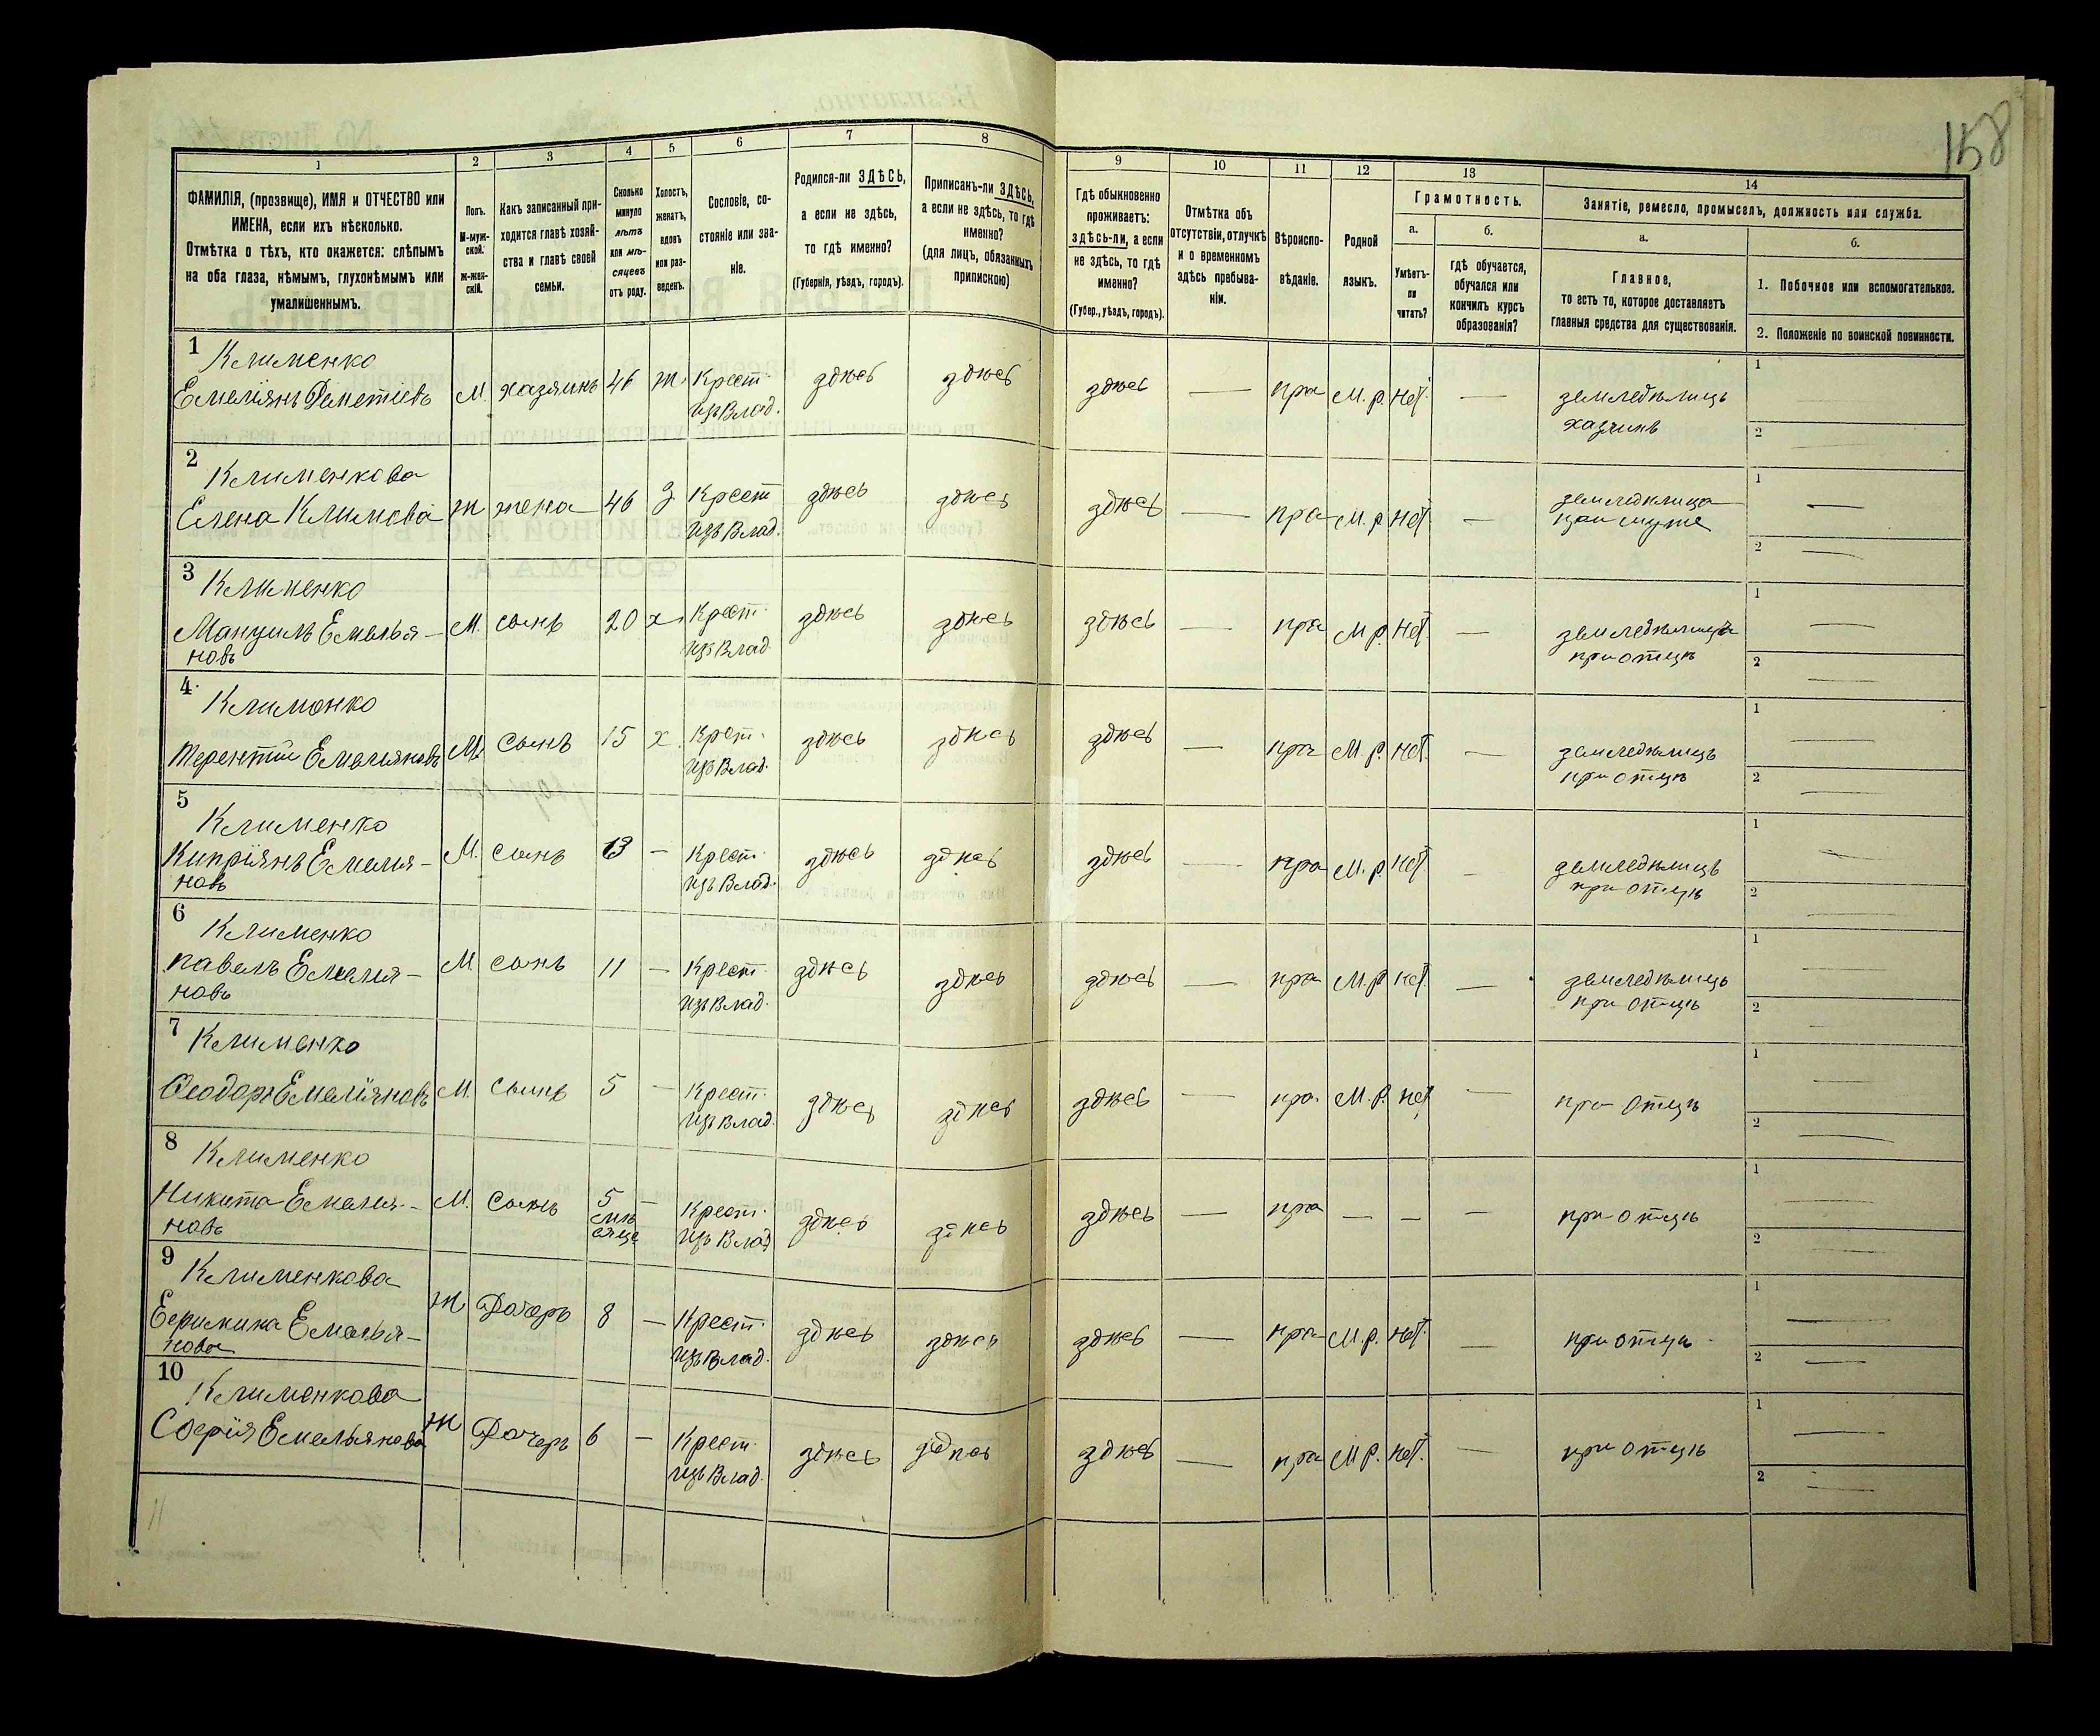 158
1 2 3 4 5 6 7 8 9 10 11 12 13 14
ФАМИЛІЯ, (прозвище), ИМЯ и ОТЧЕСТВО или
ИМЕНА, если ихъ нѣсколько.
Отмѣтка о тѣхъ, кто окажется: слѣпымъ
на оба глаза, нѣмымъ, глухонѣмымъ или
умалишеннымъ.
Полъ.
М-муж-
ской.
Ж-жен-
скій.
Какъ записанный при-
ходится главѣ хозяй-
ства и главѣ своей
семьи.
Сколько
минуло
лѣтъ
или мѣ-
сяцевъ
отъ роду.
Холостъ,
женатъ,
вдовъ
или раз-
веденъ.
Сословіе, со-
стояніе или зва-
ніе.
Родился-ли ЗДѢСЬ,
а если не здѣсь,
то гдѣ именно?
(Губернія, уѣздъ, городъ).
Приписанъ-ли ЗДѢСЬ,
а если не здѣсь, то гдѣ
именно?
(для лицъ, обязанныхъ
припискою)
Гдѣ обыкновенно
проживаетъ:
здѣсь-ли, а если
не здѣсь, то гдѣ
именно?
(Губер., уѣздъ, городъ).
Отмѣтка объ
отсутствіи, отлучкѣ
и о временномъ
здѣсь пребыва-
ніи.
Вѣроиспо-
вѣданіе.
Родной
языкъ.
Грамотность.
а.
Умѣетъ-
ли
читать?
б.
гдѣ обучается,
обучался или
кончилъ курсъ
образованія?
Занятіе, ремесло, промыселъ, должность или служба.
а.
Главное,
то есть то, которое доставляетъ
главныя средства для существованія.
б.
1. Побочное или вспомогательное.
2. Положеніе по воинской повинности.
1 Клименко
Емеліянъ Деметіевъ М. хазяинъ 46 ж. Крест. здѣсь здѣсь здѣсь — пра М. р. нет. — земледѣлицъ 1
изъ Влад. хазяинъ 2
2 Клименкова
Елена Климова Ж жена 46 з Крест здѣсь здѣсь здѣсь — пра М. р. нет — земледѣлица 1 —
изъ Влад. при муже 2 —
3 Клименко
Мануилъ Емелья- М. сынъ 20 х. Крест. здѣсь здѣсь здѣсь — пра М р. нет. — земледѣлицъ 1 —
новъ изъ Влад. при отцѣ 2 —
4 Клименко
Терентий Емельяновъ М. сынъ 15 х. Крест. здѣсь здѣсь здѣсь — пра М. р. нет. — земледѣлицъ 1 —
изъ Влад. при отцѣ 2 —
5 Клименко
Кипріянъ Емелия- М. сынъ 13 — Крест. здѣсь здѣсь здѣсь — пра М. р. нет — земледѣлицъ 1 —
новъ изъ Влад. при отцѣ 2 —
6 Клименко
Павелъ Емелия- М сынъ 11 — Крест. здѣсь здѣсь здѣсь — пра М. р. нет. — земледѣлицъ 1 —
новъ изъ Влад. при отцѣ 2 —
7 Клименко
Ѳеодоръ Емеліяновъ М. сынъ 5 — Крест. здѣсь здѣсь здѣсь — пра. М. р. нет — при отцѣ 1
изъ Влад. 2 —
8 Клименко
Никита Емелия- М. сынъ 5 — Крест. здѣсь здѣсь здѣсь — пра — — — при отцѣ 1 —
новъ изъ Влад 2 —
9 Клименкова
Емелья- Ж Дочерь 8 — Крест. здѣсь здѣсь здѣсь — пра М. р. нет. — при отцѣ 1 —
нова изъ Влад. 2 —
10 Клименкова
Софія Емельянова Ж Дочерь 6 — Крест. здѣсь здѣсь здѣсь — пра М р. нет. — при отцѣ 1 —
изъ Влад. 2 —
11